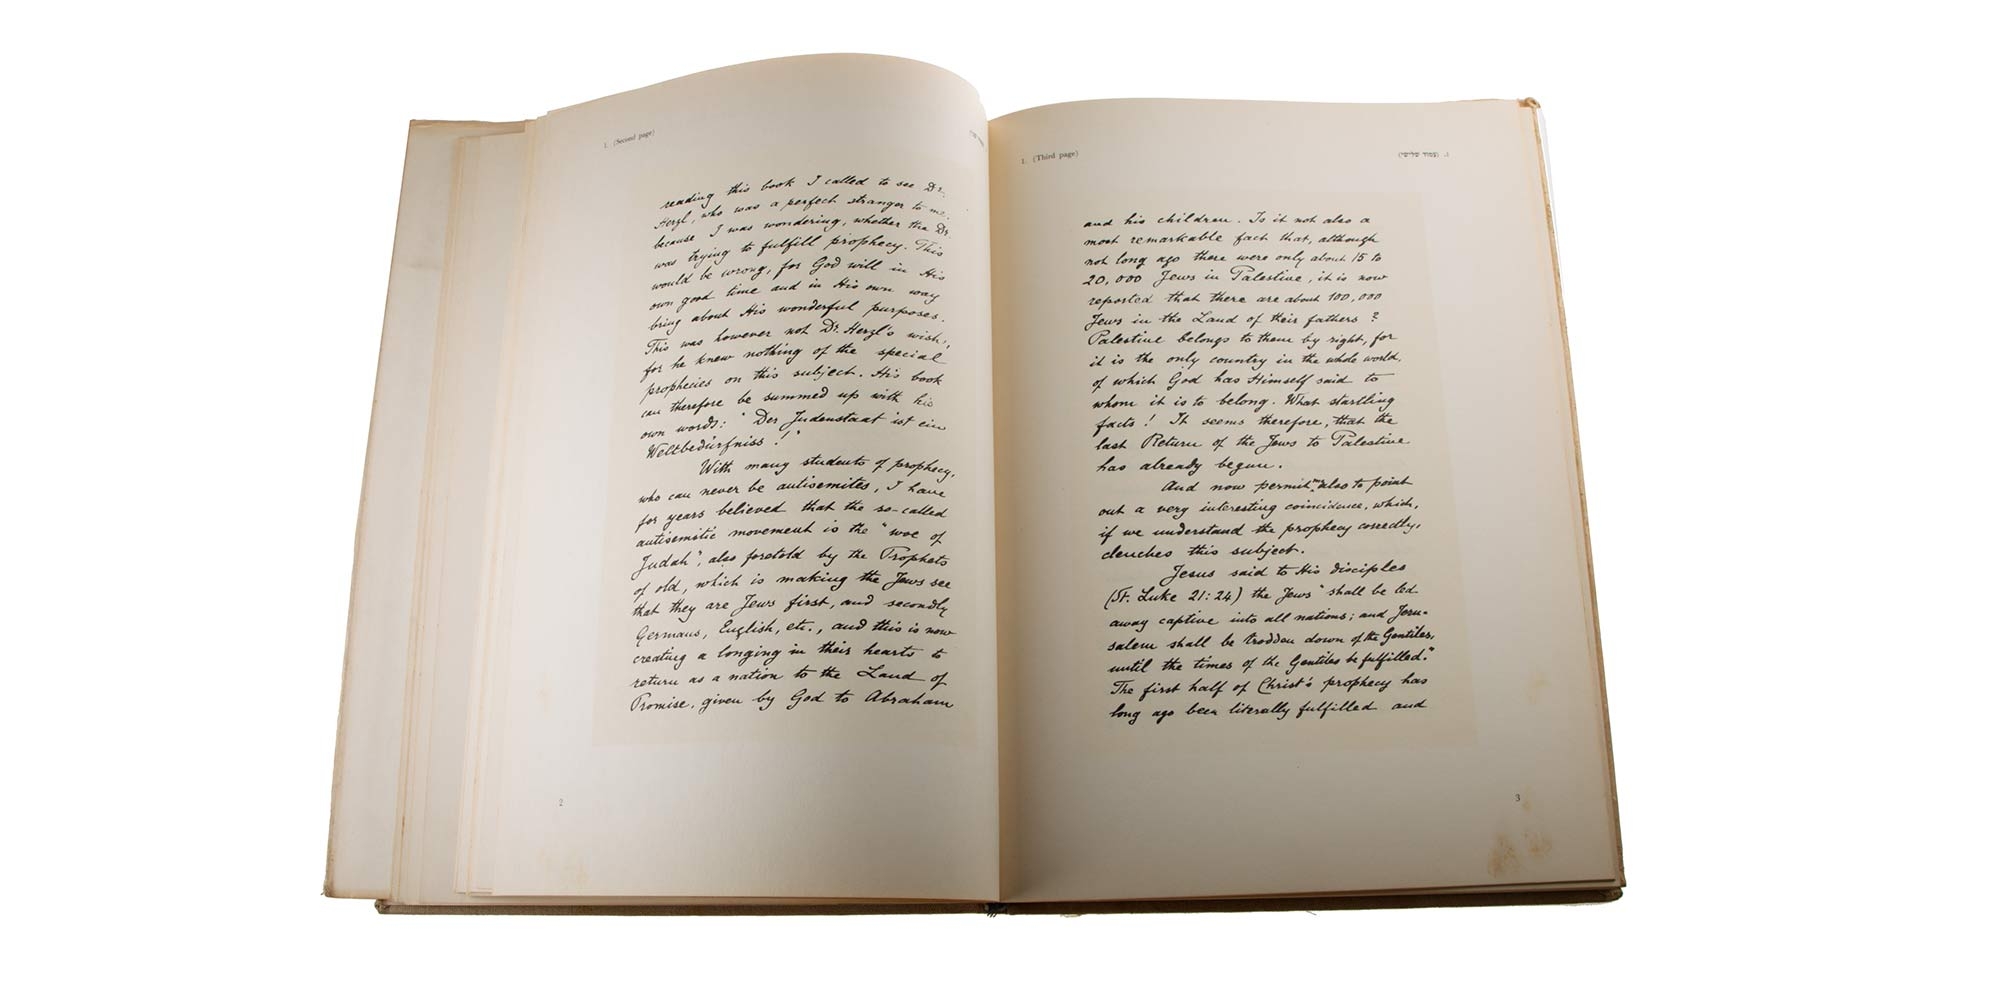 1. (Second page)
reading this book I called to see Dr.
Herzl, who was a perfect stranger to me,
because I was wondering, whether the Dr.
was trying to fulfill prophecy. This
would be wrong, for God will in His
own good time and in His own way
bring about His wonderful purposes.
This was however not Dr. Herzl's wish,
for he knew nothing of the special
prophecies on this subject. His book
can therefore be summed up with his
own words: "Der Judenstaat ist ein
Weltbedürfniss!"
With many students of prophecy,
who can never be antisemites, I have
for years believed that the so-called
antisemitic movement is the "woe of
Judah", also foretold by the Prophets
of old, which is making the Jews see
that they are Jews first, and secondly
Germans, English, etc., and this is now
creating a longing in their hearts to
return as a nation to the Land of
Promise, given by God to Abraham
2
1. (Third page)
1. (עמוד שלישי)
and his children. Is it not also a
most remarkable fact that, although
not long ago there were only about 15 to
20,000 Jews in Palestine, it is now
reported that there are about 100,000
Jews in the Land of their fathers?
Palestine belongs to them by right, for
it is the only country in the whole world,
of which God has Himself said to
whom it is to belong. What startling
facts! It seems therefore, that the
last Return of the Jews to Palestine
has already begun.
And now permit me also to point
out a very interesting coincidence, which,
if we understand the prophecy correctly,
clenches this subject.
Jesus said to His disciples
(St. Luke 21:24) the Jews "shall be led
away captive into all nations; and Jeru-
salem shall be trodden down of the Gentiles,
until the times of the Gentiles be fulfilled."
The first half of Christ's prophecy has
long ago been literally fulfilled and
3